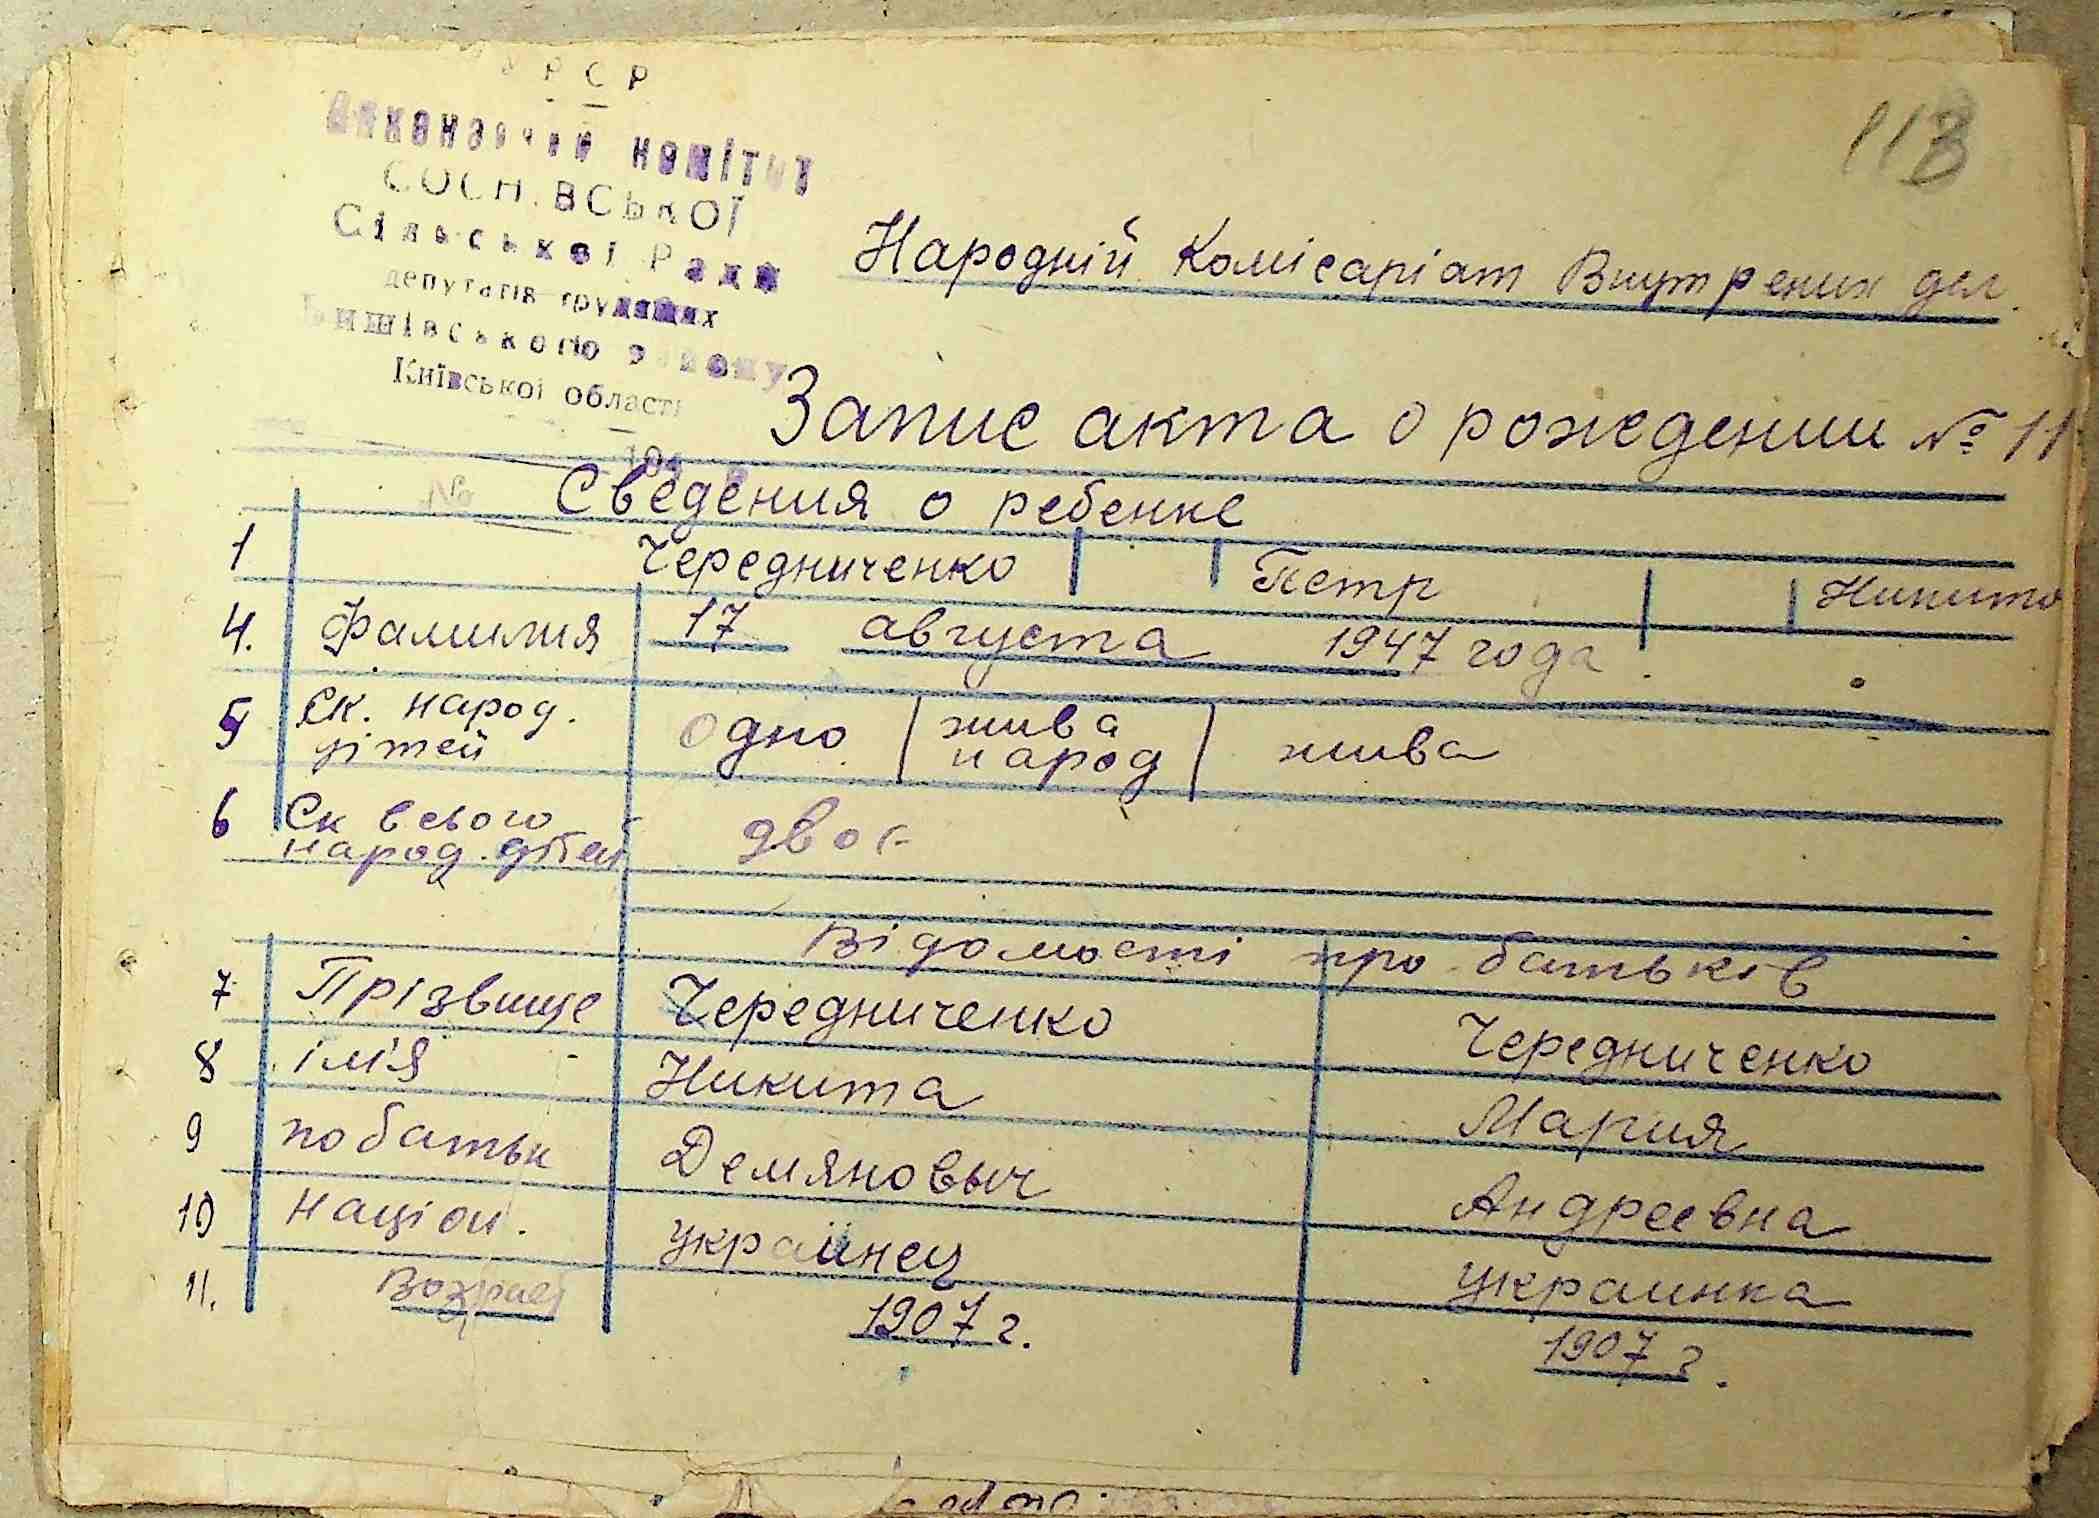 УРСР
Виконавчий комітет
СОСН.ВСЬКОЇ
Сільської Ради
депутатів трудящих
Бишівського району
Київської області
№
113
Народній Комісаріат Внутрених дел.
Запис акта о рождении № 11
Сведения о ребенке
1 Чередниченко Петр Никито
4. Фамилия 17 августа 1947 года
5 Ск. народ. дітей одно жива народ жива
6 Ск всього народ. дітей двое
Відомості про батьків
7 Прізвище Чередниченко Чередниченко
8 ім'я Никита Мария
9 по батьк Демяновыч Андреевна
10 націон. украинец украинка
11. Возраст 1907 г. 1907 г.